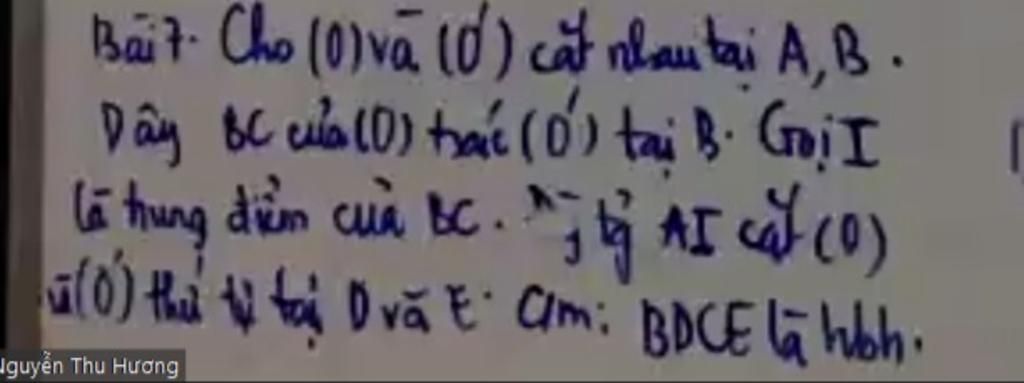 Bài 7. Cho (O) và (O') cắt nhau tại A, B.
Dây BC của (O) tiếp xúc (O') tại B. Gọi I
là trung điểm của BC. AI cắt (O)
và (O') thứ tự tại D và E. C/m: BDCE là hbh.
Nguyễn Thu Hương